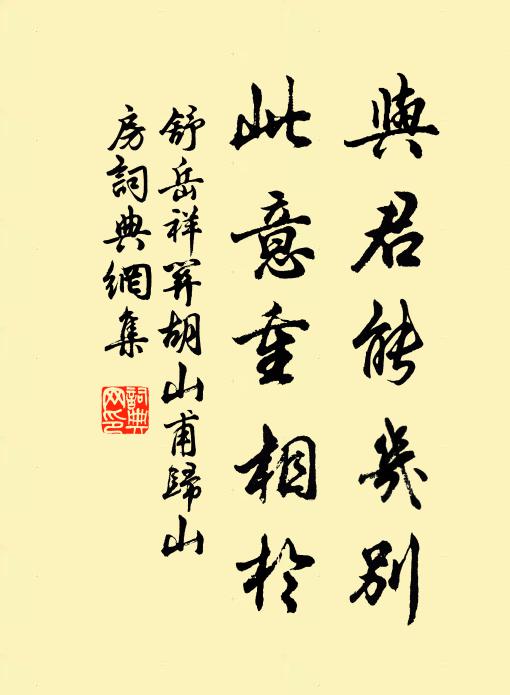 與君能幾別
此意重相於
舒岳祥胡山甫歸山
房詞典網集
詞典
网印